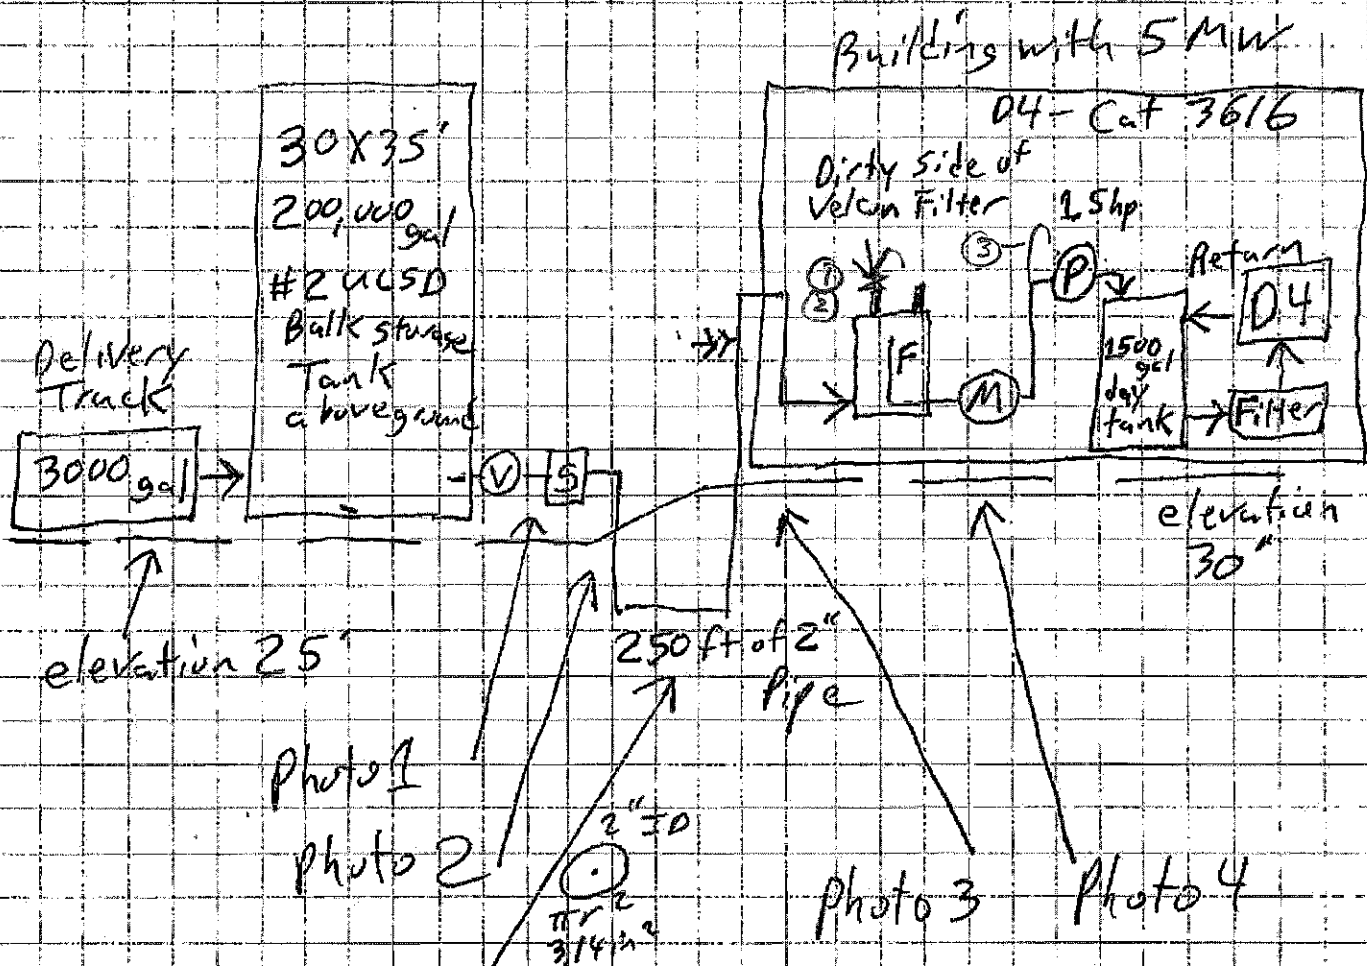 Building with 5 MW
D4 - Cat 3616
30 x 35'
200,000 gal
#2 ULSD
Bulk storage
Tank
aboveground
Delivery
Truck
3000 gal
V
S
Dirty side of
Velcon Filter
1
2
F
M
3
1.5hp
P
Return
D4
1500 gal
day
tank
Filter
elevation
30"
elevation 25'
250 ft of 2"
Pipe
Photo 1
Photo 2
2" ID
πr²
3.14 in²
Photo 3
Photo 4